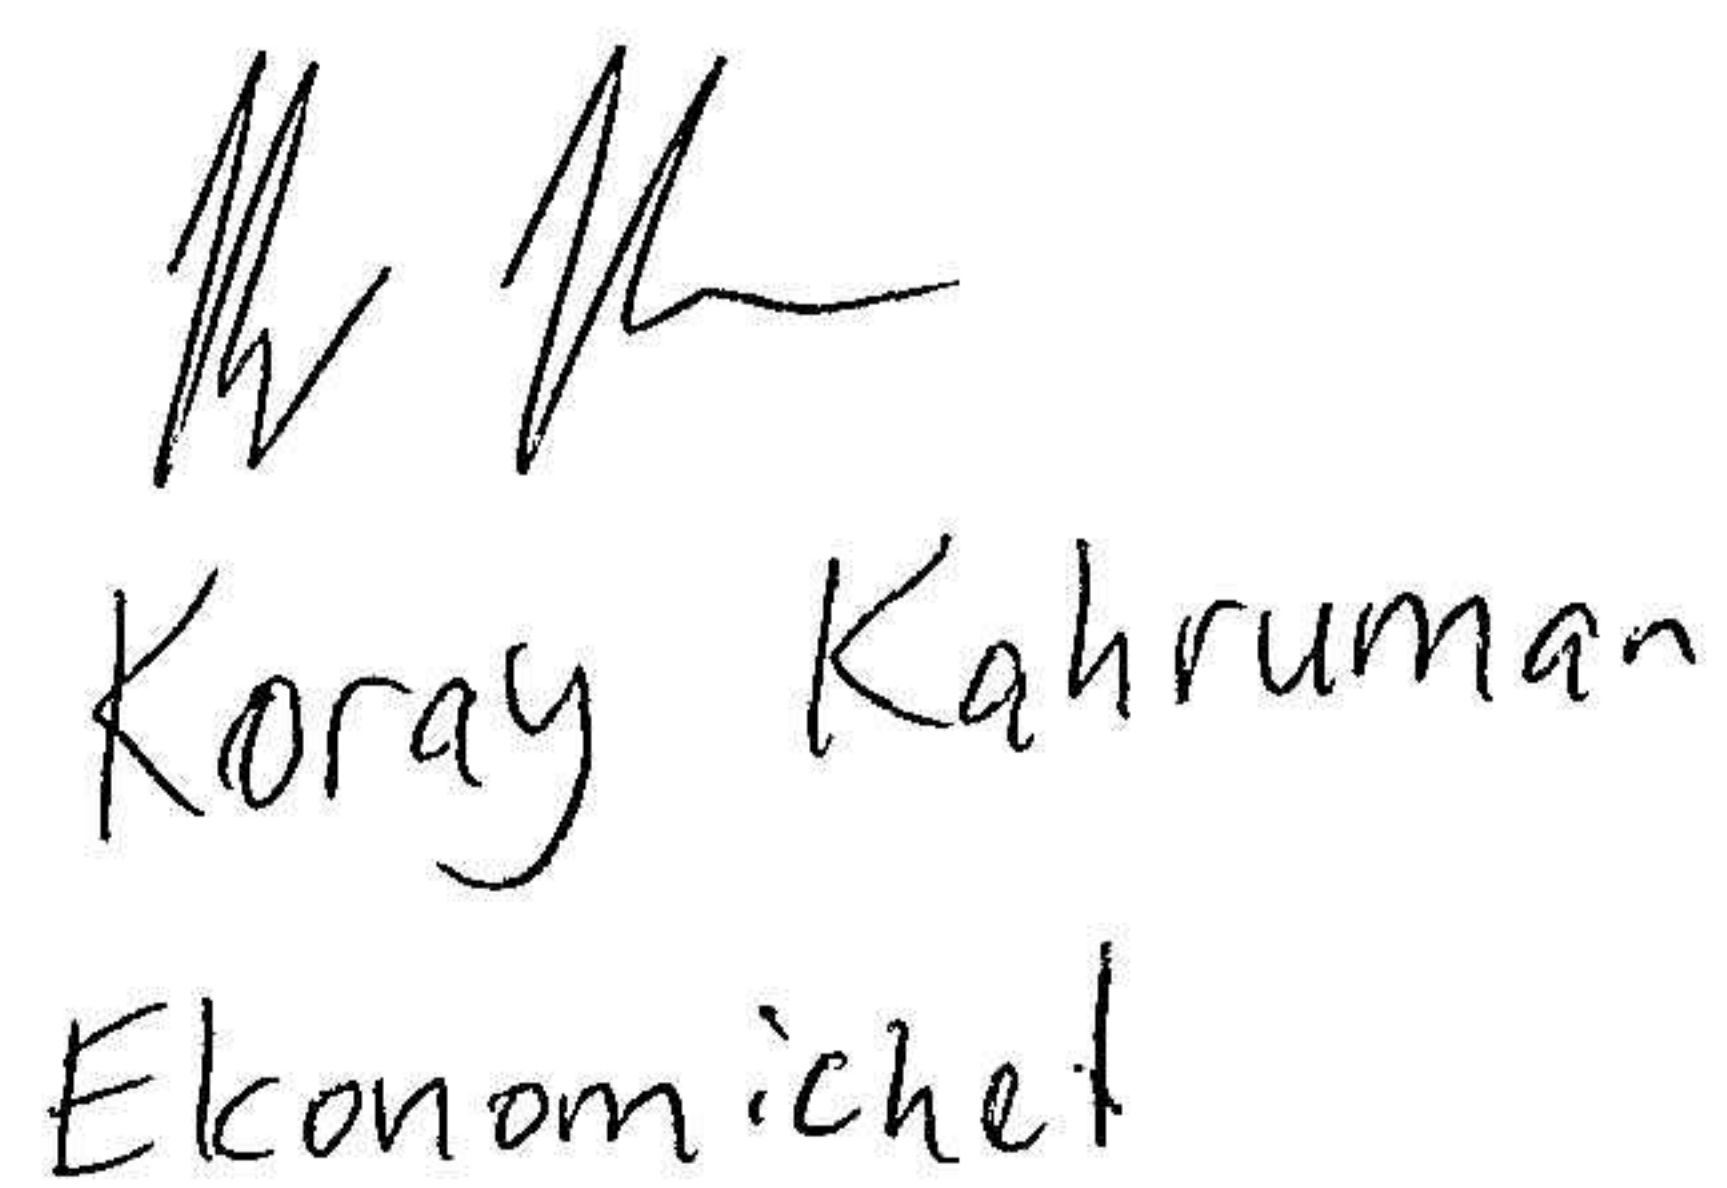 Koray Kahruman
Ekonomichef